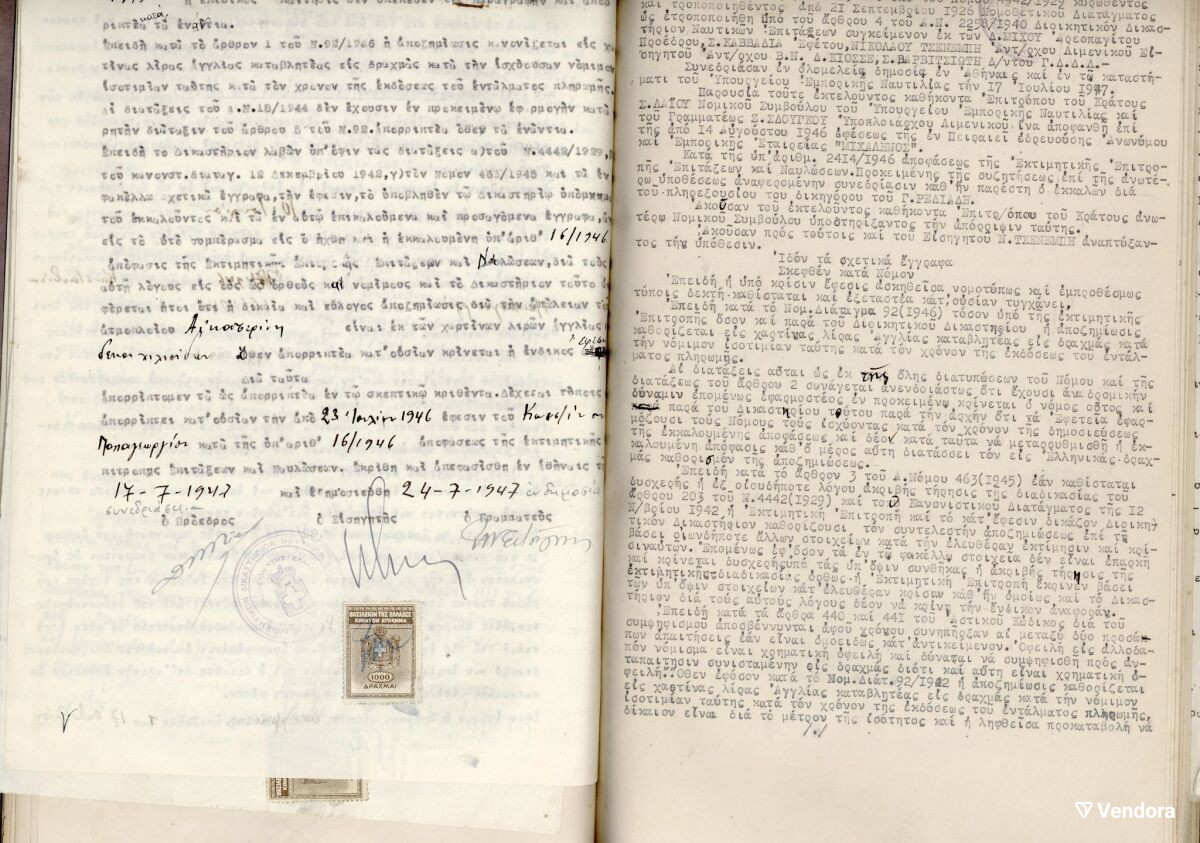 ριπτέα τά ἐναντία.
κατά
Ἐπειδή κατά τό ἄρθρον 1 τοῦ Ν.92/1946 ἡ ἀποζημίωσις κανονίζεται εἰς χαρ
τίνας λίρας ἀγγλίας καταβλητέας εἰς δραχμάς κατά τήν ἰσχύουσαν νόμιμον
ἰσοτιμίαν ταύτης κατά τόν χρόνον τῆς ἐκδόσεως τοῦ ἐντάλματος πληρωμῆς.
αἱ διατάξεις τοῦ Α.Ν.18/1944 δέν ἔχουσιν ἐν προκειμένῳ ἐφαρμογήν κατά
ρητήν διάταξιν τοῦ ἄρθρου 5 τοῦ Ν.92. ἀπορριπτέα ὅθεν τά ἐνάντια.
Ἐπειδή τό Δικαστήριον λαβών ὑπ'ὄψιν τάς διατάξεις α)τοῦ Ν.4442/1929,
τοῦ κανονιστ.διαταγ. 12 Δεκεμβρίου 1942,γ)τόν Νόμον 463/1945 καί τά ἐν
φακέλλῳ σχετικά ἔγγραφα,τήν ἔφεσιν,τό ὑποβληθέν τῷ Δικαστηρίῳ ὑπόμνημα
τοῦ ἐκκαλοῦντος καί τά ἐν αὐτῷ ἐπικαλούμενα καί προσαγόμενα ἔγγραφα,
εἰς τό αὐτό συμπέρασμα εἰς ὅ ἤχθη καί ἡ ἐκκαλουμένη ὑπ'ἀριθ 16/1946
ἀπόφασις τῆς Ἐκτιμητικῆς Ἐπιτροπῆς Ἐπιτάξεων καί Ναυλώσεων,διά τούς
αὐτῇ λόγους εἰς οὕς ὡς ὀρθούς καί νομίμους καί τό Δικαστήριον τοῦτο
φέρεται ἤτοι ὅτι ἡ δικαία καί εὔλογος ἀποζημίωσις διά τήν ἀπώλειαν τοῦ
ἀτμοπλοίου Αἰκατερίνη εἶναι ἐκ τῶν χαρτίνων λιρῶν ἀγγλίας
δέκα χιλιάδων Ὅθεν ἀπορριπτέα κατ'οὐσίαν κρίνεται ἡ ἔνδικος ἔφεσις
Διά ταῦτα
ἀπορρίπτομεν τά ὡς ἀπορριπτέα ἐν τῷ σκεπτικῷ κριθέντα. Δέχεται τύποις
ἀπορρίπτει κατ'οὐσίαν τήν ἀπό 23 Ἰουλίου 1946 ἔφεσιν τοῦ Κωνσ/ίνου
Παπαγεωργίου κατά τῆς ὑπ'ἀριθ' 16/1946 ἀποφάσεως τῆς ἐκτιμητικῆς
πιτροπῆς Ἐπιτάξεων καί Ναυλώσεων. Ἐκρίθη καί ἀπεφασίσθη ἐν Ἀθήναις τῇ
17-7-1947 καί ἐδημοσιεύθη 24-7-1947 ἐν δημοσίᾳ
συνεδριάσει
ὁ Πρόεδρος ὁ Εἰσηγητής ὁ Γραμματεύς
ΒΑΣΙΛΕΙΟΝ ΤΗΣ ΕΛΛΑΔΟΣ
ΚΙΝΗΤΟΝ ΕΠΙΣΗΜΑ
1000
ΔΡΑΧΜΑΙ
καί τροποποιηθέντος ἀπό 21 Σεπτεμβρίου 1926 Νομοθετικοῦ Διατάγματος
ὡς ἐτροποποιήθη ὑπό τοῦ ἄρθρου 4 τοῦ Α.Ν. 2258/1940 Διοικητικόν Δικασ-
τήριον Ναυτικῶν Ἐπιτάξεων συγκείμενον ἐκ τῶν Δ.ΜΙΧΟΥ Ἀρεοπαγίτου
Προέδρου,Σ.ΚΑΒΒΑΔΙΑ Ἐφέτου,ΝΙΚΟΛΑΟΥ ΤΣΕΝΕΜΠΗ Ἀντ/ρχου Λιμενικοῦ Εἰ-
σηγητοῦ Ἀντ/ρχου Β.Ν. Δ.ΚΙΟΣΣΕ,Σ.ΒΑΡΒΙΤΣΙΩΤΗ Δ/ντοῦ Γ.Δ.Δ.Λ.-
Συνεδρίασαν ἐν ὁλομελείᾳ δημοσίᾳ ἐν Ἀθήναις καί ἐν τῷ καταστή-
ματι τοῦ Ὑπουργείου Ἐμπορικῆς Ναυτιλίας τήν 17 Ἰουλίου 1947.
Παρουσίᾳ τοῦτε ἐκτελοῦντος καθήκοντα Ἐπιτρόπου τοῦ Κράτους
Σ.ΛΑΪΟΥ Νομικοῦ Συμβούλου τοῦ Ὑπουργείου Ἐμπορικῆς Ναυτιλίας καί
τοῦ Γραμματέως Ζ.ΣΔΟΥΓΚΟΥ Ὑποπλοιάρχου Λιμενικοῦ ἵνα ἀποφανθῇ ἐπί
τῆς ἀπό 14 Αὐγούστου 1946 ἐφέσεως τῆς ἐν Πειραιεῖ ἑδρευούσης Ἀνωνύμου
καί Ἐμπορικῆς Ἑταιρείας "ΜΙΧΑΛΗΝΟΣ".
Κατά τῆς ὑπ'ἀριθμ. 2414/1946 ἀποφάσεως τῆς Ἐκτιμητικῆς Ἐπιτρο-
πῆς Ἐπιτάξεων καί Ναυλώσεων.Προκειμένης τῆς συζητήσεως ἐπί τῆς ἀνωτέ-
ρω ὑποθέσεως ἀναφερομένην συνεδρίασιν καθ'ἥν παρέστη ὁ ἐκκαλῶν διά
τοῦ πληρεξουσίου του δικηγόρου του Γ.ΡΕΔΙΑΔΗ.
Ἀκούσαν τοῦ ἐκτελοῦντος καθήκοντα Ἐπιτρ/όπου τοῦ Κράτους ἀνω-
τέρω Νομικοῦ Συμβούλου ὑποστηρίξαντος τήν ἀπόρριψιν ταύτης.
Ἀκούσαν πρός τούτοις καί τοῦ Εἰσηγητοῦ Ν.ΤΣΕΝΕΜΠΗ ἀναπτύξαν-
τος τήν ὑπόθεσιν.
Ἰδόν τά σχετικά ἔγγραφα
Σκεφθέν κατά Νόμον
Ἐπειδή ἡ ὑπό κρίσιν ἔφεσις ἀσκηθεῖσα νομοτύπως καί ἐμπροθέσμως
τύποις δεκτή καθίσταται καί ἐξεταστέα κατ'οὐσίαν τυγχάνει.
Ἐπειδή κατά τό Νομ.Διάταγμα 92(1946) τόσον ὑπό τῆς ἐκτιμητικῆς
Ἐπιτροπῆς ὅσον καί παρά τοῦ Διοικητικοῦ Δικαστηρίου ἡ ἀποζημίωσις
καθορίζεται εἰς χαρτίνας λίρας Ἀγγλίας καταβλητέας εἰς δραχμάς κατά
τήν νόμιμον ἰσοτιμίαν ταύτης κατά τόν χρόνον τῆς ἐκδόσεως τοῦ ἐντάλ-
ματος πληρωμῆς.
Αἱ διατάξεις αὗται ὡς ἐκ τῆς ὅλης διατυπώσεως τοῦ Νόμου καί τῆς
διατάξεως τοῦ ἄρθρου 2 συνάγεται ἀνενδοιάστως ὅτι ἔχουσι ἀναδρομικήν
δύναμιν ἑπομένως ἐφαρμοστέος ἐν προκειμένῳ κρίνεται ὁ νόμος οὗτος καί
παρά τοῦ Δικαστηρίου τούτου παρά τήν ἀρχήν ὅτι τά Ἐφετεῖα ἐφαρ-
μόζουσι τούς Νόμους τούς ἰσχύοντας κατά τόν χρόνον τῆς δημοσιεύσεως
τῆς ἐκκαλουμένης ἀποφάσεως καί δέον κατά ταῦτα νά μεταρρυθμισθῇ ἡ ἐκ-
καλουμένη ἀπόφασις καθ'ὅ μέρος αὕτη διατάσσει τόν εἰς Ἑλληνικάς δραχ-
μάς καθορισμόν τῆς ἀποζημιώσεως.
Ἐπειδή κατά τό ἄρθρον 3 τοῦ Α.Νόμου 463(1945) ἐάν καθίσταται
δυσχερής ἤ ἐξ οἱουδήποτε λόγου ἀκριβής τήρησις τῆς διαδικασίας τοῦ
ἄρθρου 203 τοῦ Ν.4442(1929) καί τοῦ Κανονιστικοῦ Διατάγματος τῆς 12
Ν/βρίου 1942 ἡ Ἐκτιμητική Ἐπιτροπή καί τό κατ'ἔφεσιν δικάζον Διοικη-
τικόν Δικαστήριον καθορίζουσι τόν συντελεστήν ἀποζημιώσεως ἐπί τῇ
βάσει οἱωνδήποτε ἄλλων στοιχείων κατά τήν ἐλευθέραν ἐκτίμησιν καί κρί-
σιν αὐτῶν. Ἑπομένως ἐφ'ὅσον τά ἐν τῷ φακέλλῳ στοιχεῖα δέν εἶναι ἐπαρκῆ
καί κρίνεται δυσχερής ὑπό τάς ὑπ'ὄψιν συνθήκας ἡ ἀκριβής τήρησις τῆς
ἐκτιμητικῆς διαδικασίας ὀρθῶς ἡ Ἐκτιμητική Ἐπιτροπή ἔκρινεν βάσει
τῶν ὑπ'ὄψιν στοιχείων κατ'ἐλευθέραν κρίσιν καθ'ἥν ὁμοίως καί τό Δικασ-
τήριον διά τούς αὐτούς λόγους δέον νά κρίνῃ τήν ἔνδικον ἀναφοράν.
Ἐπειδή κατά τά ἄρθρα 440 καί 441 τοῦ Ἀστικοῦ Κώδικος διά τοῦ
συμψηφισμοῦ ἀποσβέννυνται ἀφ'οὗ χρόνου συνυπῆρξαν αἱ μεταξύ δύο προσώ-
πων ἀπαιτήσεις ἐάν εἶναι ὁμοειδεῖς κατ'ἀντικείμενον. Ὀφειλή εἰς ἀλλοδα-
πόν νόμισμα εἶναι χρηματική ὀφειλή καί δύναται νά συμψηφισθῇ πρός ἀν-
ταπαίτησιν συνισταμένην εἰς δραχμάς διότι καί αὕτη εἶναι χρηματική ὀ-
φειλή. Ὅθεν ἐφόσον κατά τό Νομ.Διάτ.92/1942 ἡ ἀποζημίωσις καθορίζεται
εἰς χαρτίνας λίρας Ἀγγλίας καταβλητέας εἰς δραχμάς κατά τήν νόμιμον
ἰσοτιμίαν ταύτης κατά τόν χρόνον τῆς ἐκδόσεως τοῦ ἐντάλματος πληρωμῆς,
δίκαιον εἶναι διά τό μέτρον τῆς ἰσότητος καί ἡ ληφθεῖσα προκαταβολή νά
./.
Vendora